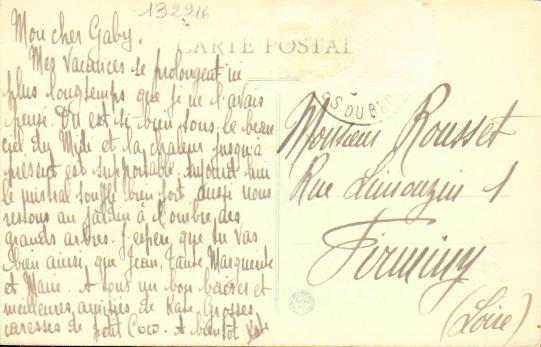 132916
CARTE POSTALE
Mon cher Gaby.
Mes vacances se prolongent ici
plus longtemps que je ne l'avais
pensé. On est si bien sous le beau
ciel du Midi et la chaleur jusqu'à
présent est supportable. Aujourd'hui
le mistral souffle bien fort, aussi nous
restons au jardin à l'ombre des
grands arbres. J'espère que tu vas
bien ainsi que Jean, Tante Marguerite
et Marie. A tous un bon baiser et
meilleures amitiés de Kate. Grosses
caresses de petit Coco. A bientôt Kate
Monsieur Rousset
Rue Limouzin 1
Firminy
(Loire)